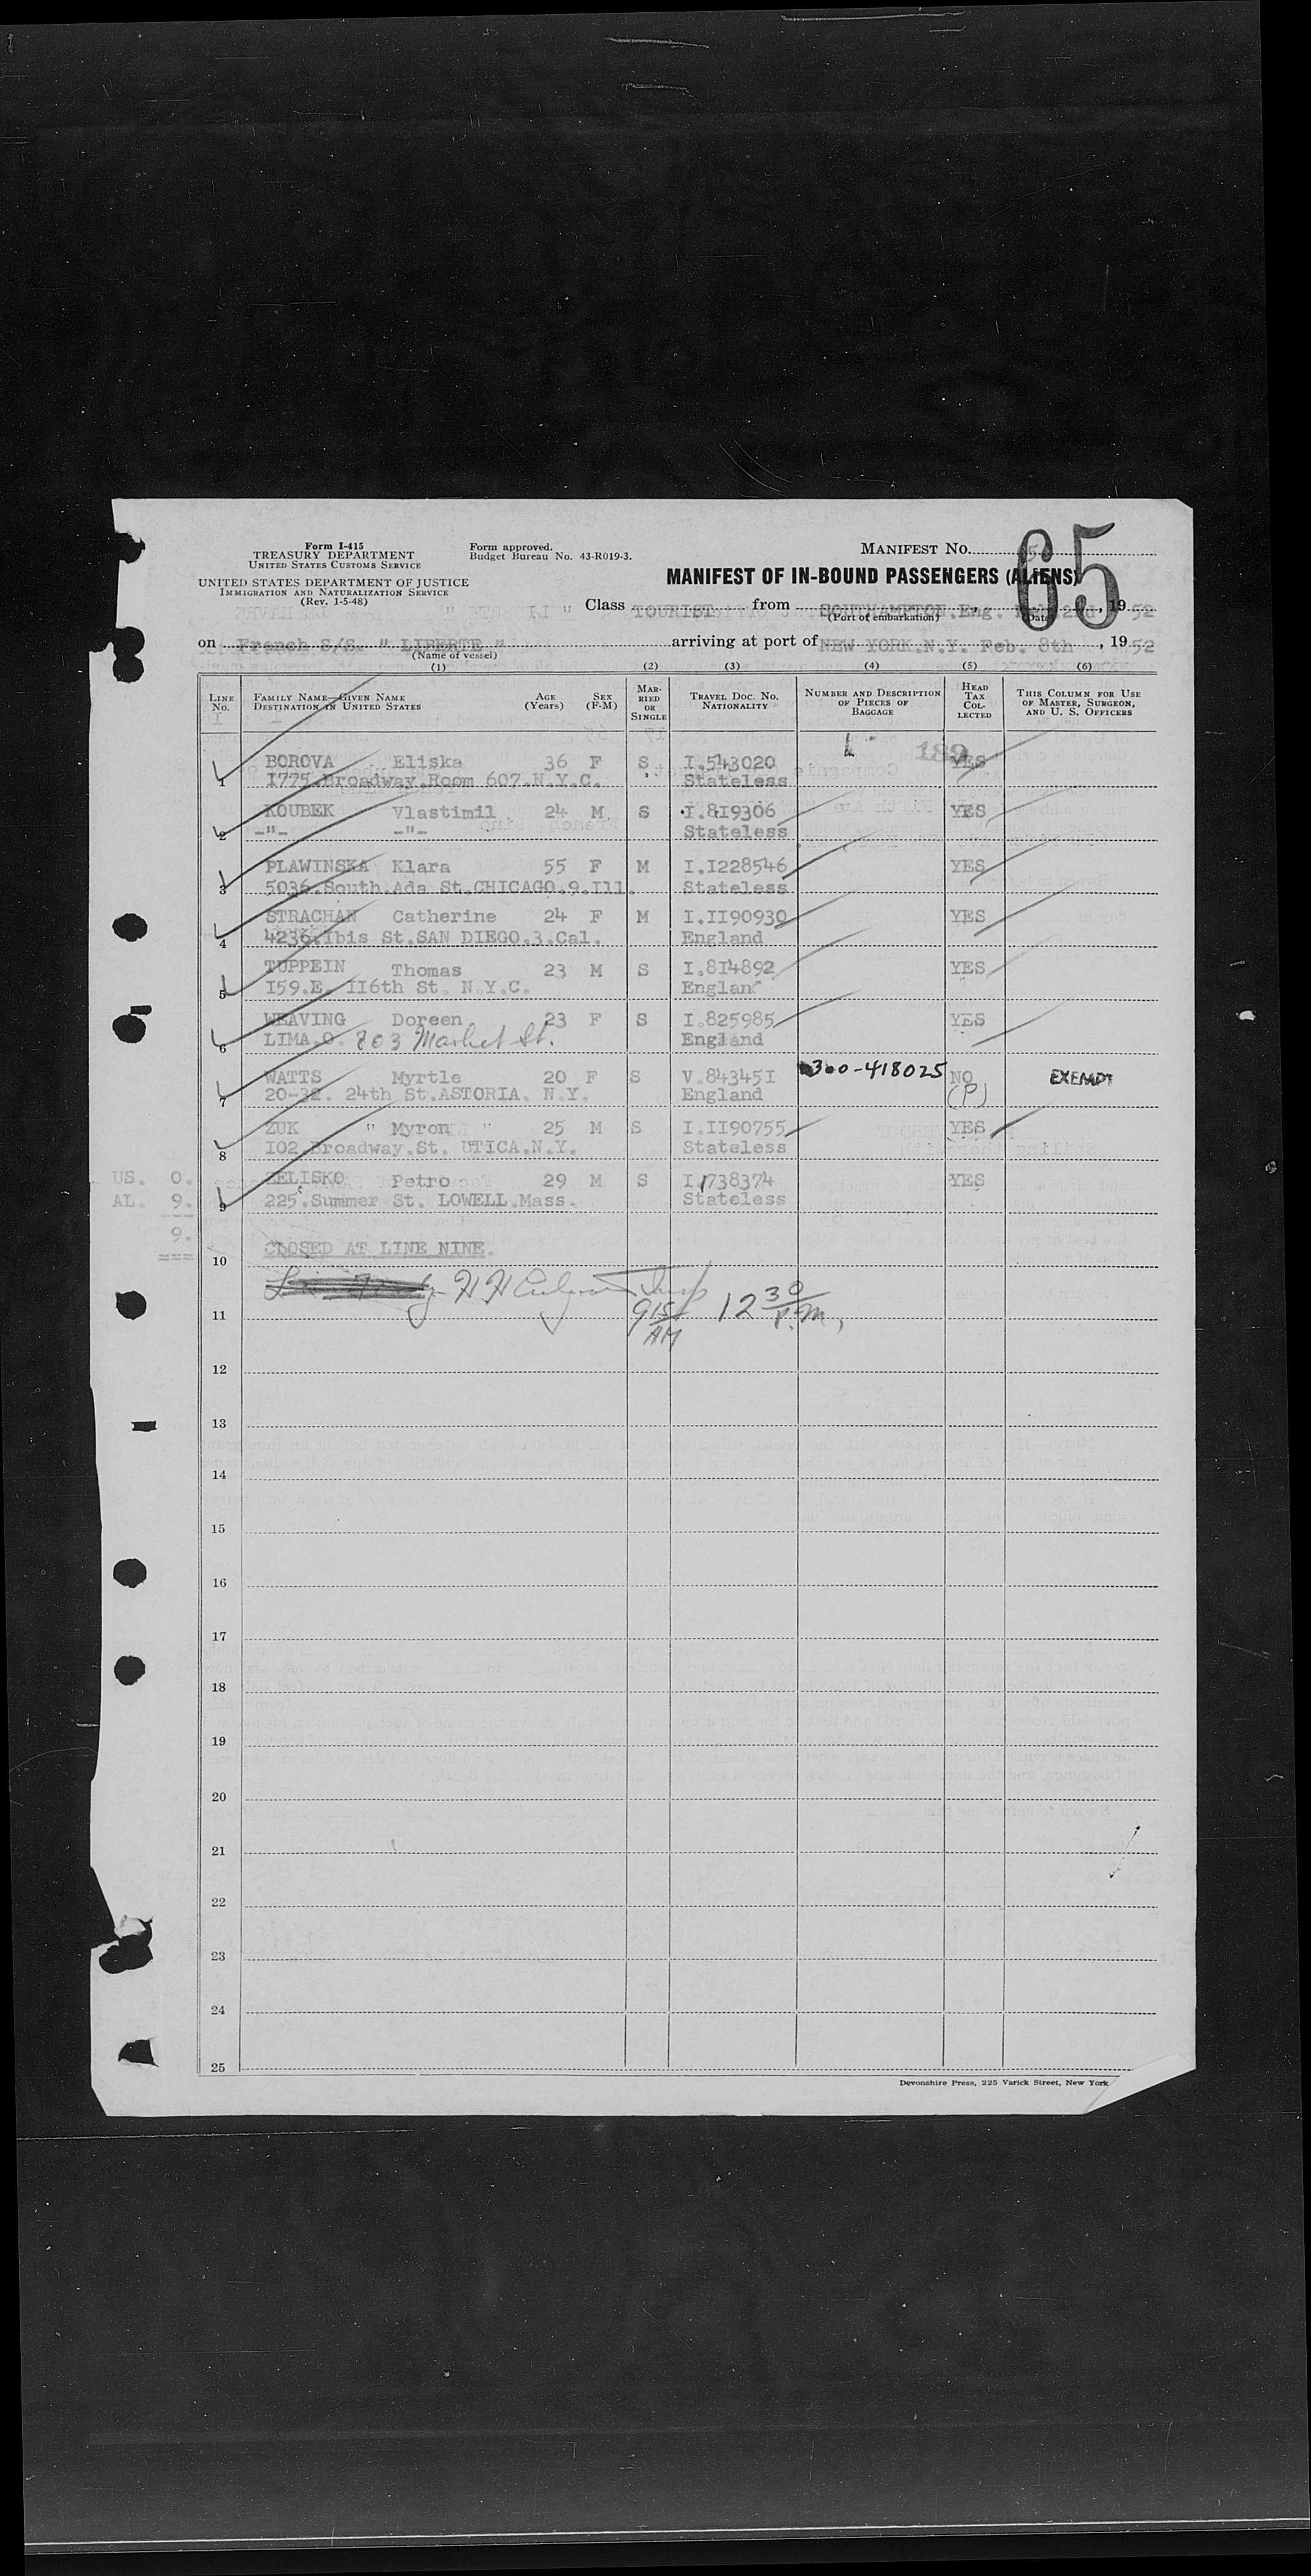 Form I-415
TREASURY DEPARTMENT
UNITED STATES CUSTOMS SERVICE
UNITED STATES DEPARTMENT OF JUSTICE
IMMIGRATION AND NATURALIZATION SERVICE
(Rev. 1-5-48)
Form approved.
Budget Bureau No. 43-R019-3.
MANIFEST NO.
65
MANIFEST OF IN-BOUND PASSENGERS (ALIENS)
Class TOURIST from SOUTHAMPTON.Eng. , 19 52
(Port of embarkation) (Date)
on French S/S. " LIBERTE " arriving at port of NEW YORK.N.Y. Feb. 8th , 19 52
(Name of vessel)
(1) (2) (3) (4) (5) (6)
LINE No. FAMILY NAME—GIVEN NAME DESTINATION IN UNITED STATES AGE (Years) SEX (F-M) MARRIED OR SINGLE TRAVEL DOC. NO. NATIONALITY NUMBER AND DESCRIPTION OF PIECES OF BAGGAGE HEAD TAX COLLECTED THIS COLUMN FOR USE OF MASTER, SURGEON, AND U. S. OFFICERS
189
1 BOROVA Eliska 36 F S I.543020 YES
I775.Broadway.Room 607.N.Y.C. Stateless
2 KOUBEK Vlastimil 24 M S I.8I9306 YES
-"- -"- Stateless
3 PLAWINSKA Klara 55 F M I.I228546 YES
5036.South.Ada St.CHICAGO.9.Ill. Stateless
4 STRACHAN Catherine 24 F M I.II90930 YES
4236.Ibis St.SAN DIEGO.3.Cal. England
5 TUPPEIN Thomas 23 M S I.8I4892 YES
I59.E. II6th St. N.Y.C. Englan
6 WEAVING Doreen 23 F S I.825985 YES
LIMA.O. 803 Market St. England
7 WATTS Myrtle 20 F S V.84345I 300-418025 NO EXEMPT
20-32. 24th St.ASTORIA. N.Y. England (P)
8 ZUK " Myron " 25 M S I.II90755 YES
I02.Broadway.St. UTICA.N.Y. Stateless
US. 0.
9 ZELISKO Petro 29 M S I.738374 YES
AL. 9.
225.Summer St. LOWELL.Mass. Stateless
9.
===
10 CLOSED AT LINE NINE.
11 9 15 AM 12 30 P.M,
12
13
14
15
16
17
18
19
20
21
22
23
24
25
Devonshire Press, 225 Varick Street, New York